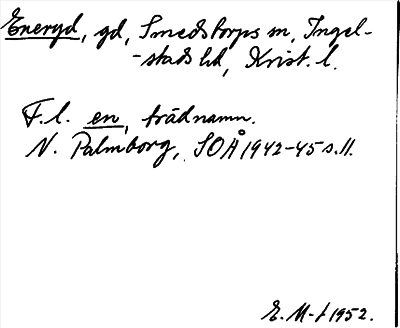 Eneryd, gd, Smedstorps sn, Ingel-
-stads hd, Krist. l.
F.l. en, trädnamn.
N. Palmborg, SOÅ 1942-45 s. 11.
E. M-t 1952.